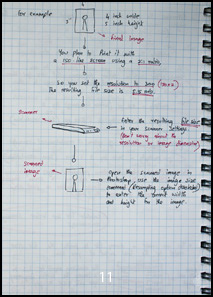 for example
4 inch wide
5 inch height
5"
final image
You plan to Print it with
a 150 line screen using a 2:1 ratio.
So you set the resolution to 300
The resulting file size is
scanner
Enter the resulting file size
in your scanner settings
(Don't worry about the
resolution or image dimension)
scanned
image
Open the scanned image in
Photoshop, use the image size
command (Resampling option deselected)
to enter the correct width
and height for the image.
11